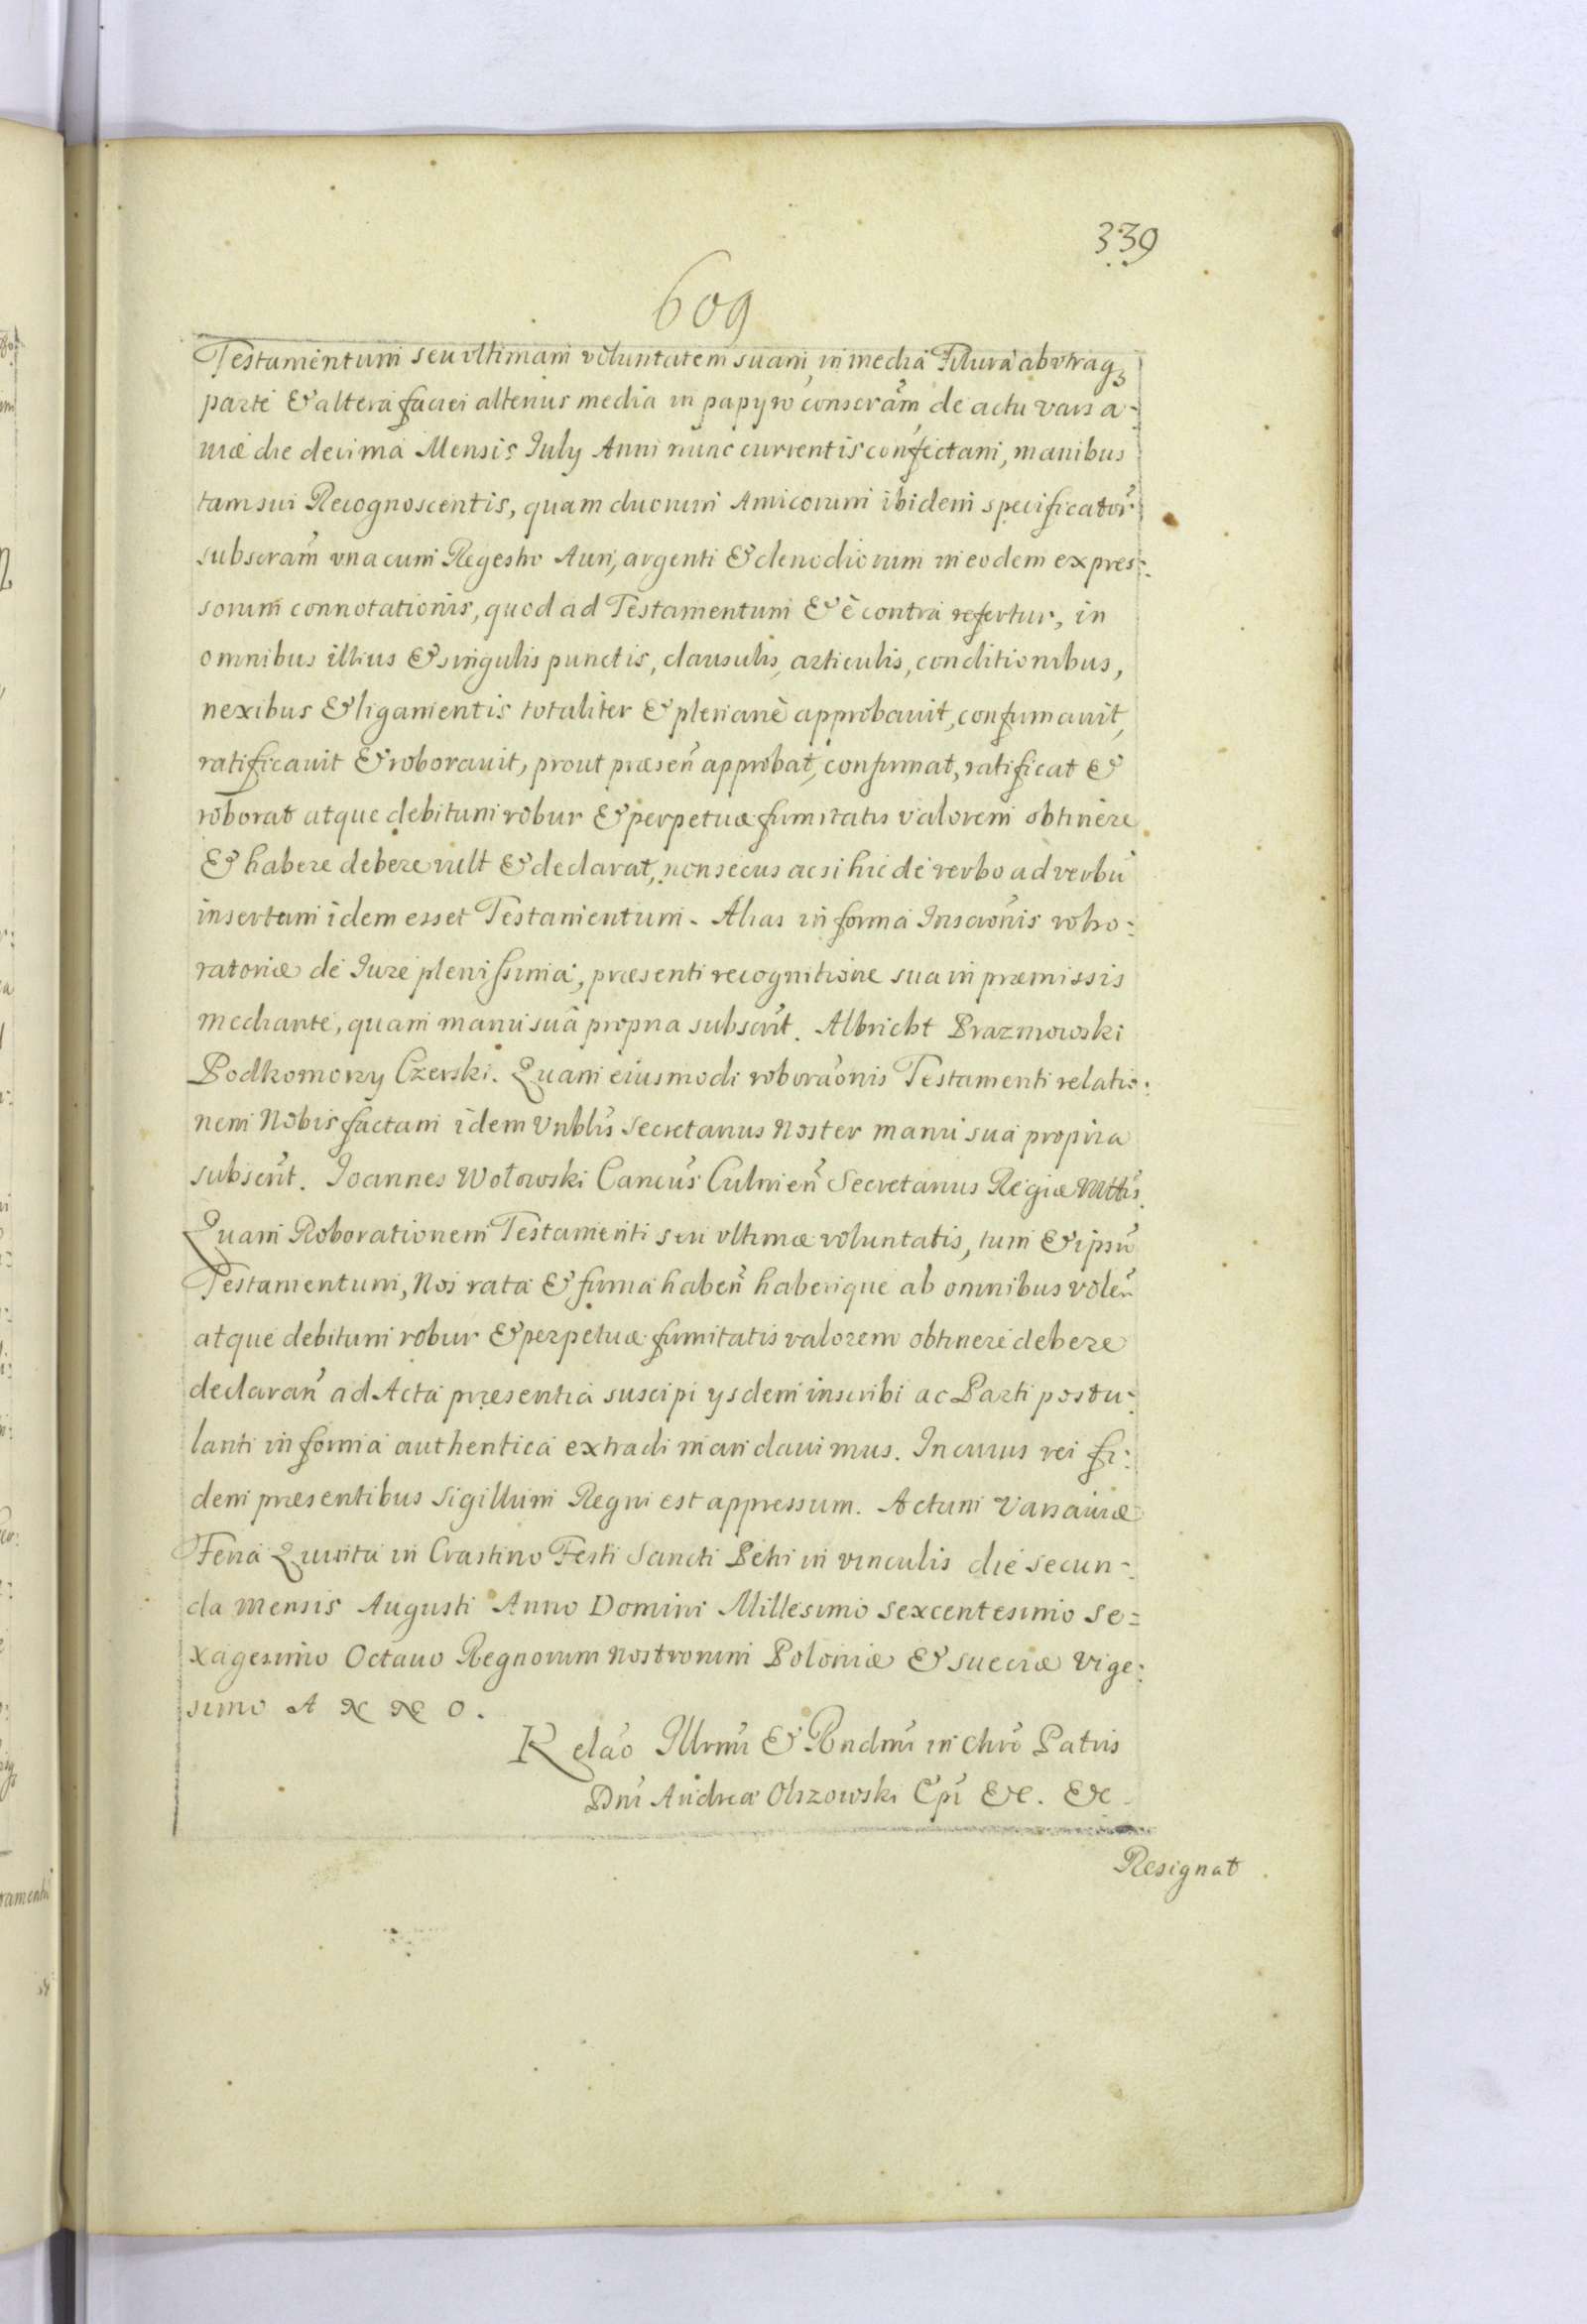 339
609
Testamentum seu vltimam voluntatem suam, in media Filura ab vtraq3
parte & altera faciei alterius media in papyro conscrām de actu Varsa-
uiæ die decima Mensis July Anni nunc currentis confectam, manibus
tam sui Recognoscentis, quam duorum Amicorum ibidem specificator̃
subscram̃ vna cum Regestro Auri, argenti & clenodiorum in eodem expres:
sorum connotationis, quod ad Testamentum & è contra refertur, in
omnibus illius & singulis punctis, clausulis, articulis, conditionibus,
nexibus & ligamentis totaliter & plenariè approbauit, confirmauit,
ratificauit & roborauit, prout præsen̄ approbat, confirmat, ratificat &
roborat atque debitum robur & perpetuæ firmitatis valorem obtinere
& habere debere vult & declarat, non secus ac si hic de verbo ad verbū
insertum idem esset Testamentum. Alias in forma Inscrōnis robo:
ratoriæ de Iure plenissima, præsenti recognitione sua in præmissis
mediante, quam manu suâ propria subscrt̄. Albricht Prazmowski
Podkomorzy Czerski. Quam eiusmodi roborāonis Testamenti relatio:
nem Nobis factam idem Vrblis̄ Secretarius Noster manu sua propria
subscrt̄. Joannes Wołowski Cancūs Culmien̄ Secretarius Regiæ Mttis̄.
Quam Roborationem Testamenti seu vltimæ voluntatis, tum & ipsū
Testamentum, Nos rata & firma haben̄ haberique ab omnibus volen̄
atque debitum robur & perpetuæ firmitatis valorem obtinere debere
declaran̄ ad Acta præsentia suscipi ysdem inscribi ac Parti postu:
lanti in forma authentica extradi mandauimus. In cuius rei fi:
dem præsentibus Sigillum Regni est appressum. Actum Varsauiæ
Feria Quinta in Crastino Festi Sancti Petri in vinculis die secun-
da mensis Augusti Anno Domini Millesimo sexcentesimo se=
xagesimo Octauo Regnorum nostrorum Poloniæ & sueciæ Vige:
simo A N N O.
Relāo Illrmi & Rndmi in Chrō Patris
Dnī Andreæ Olszowski Epī &c. &c
Resignat